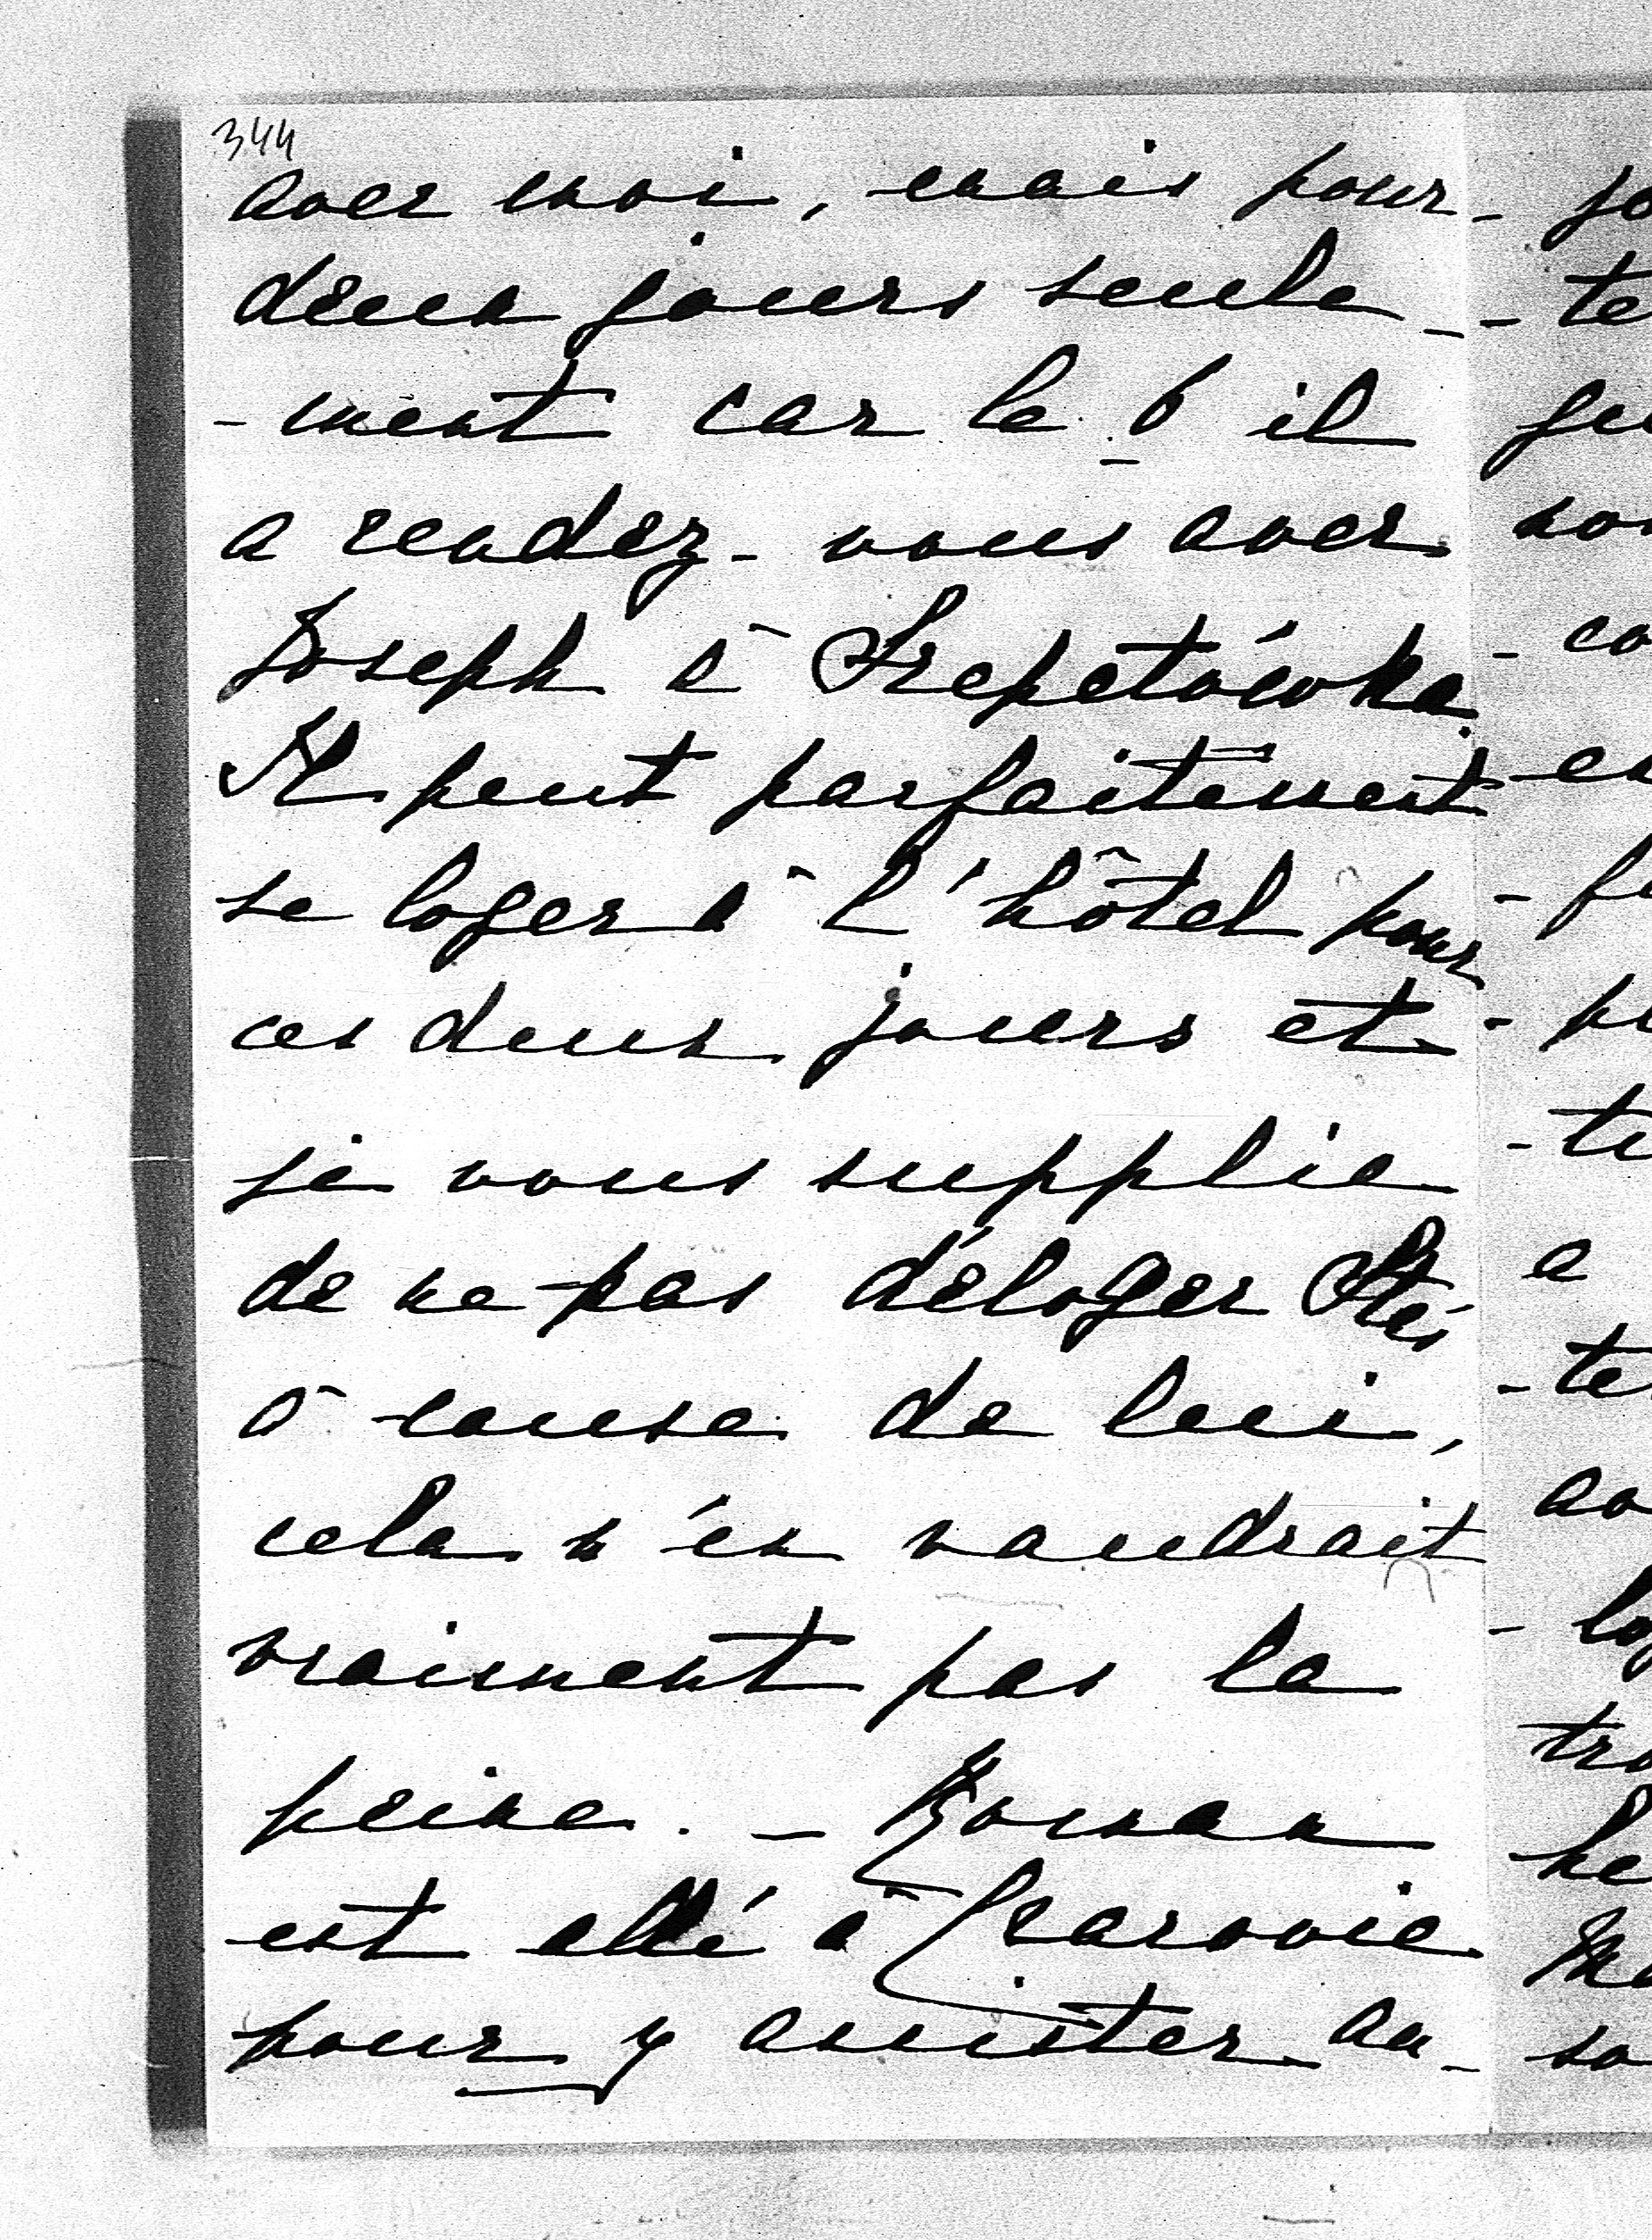 344
avec moi, mais pour
deux jours seule-
-ment car le 6 il
a rendez-vous avec
Joseph à Szepetówka.
Il peut parfaitement
se loger à l'hôtel pour
ces deux jours et
je vous supplie
de ne pas déloger Sté
à cause de lui,
cela n'en vaudrait
vraiment pas la
peine. - Roman
est allé à Cracovie
pour y assister au-